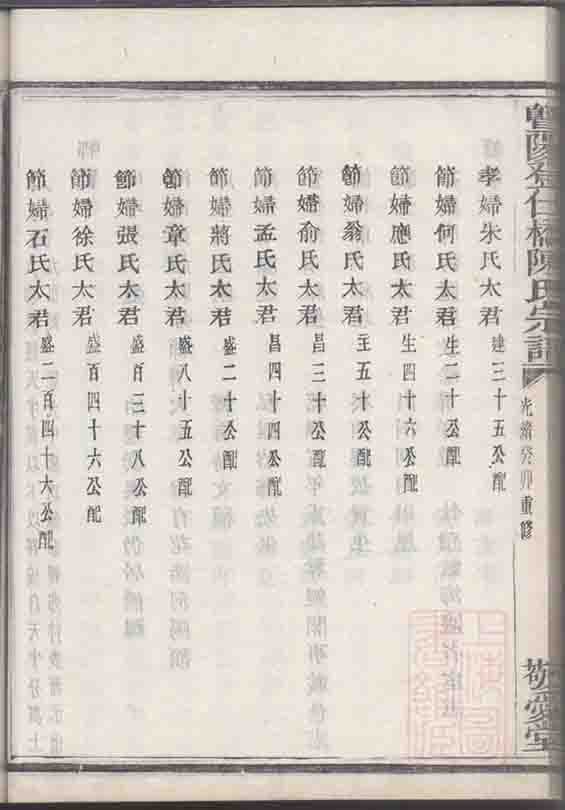 暨陽金仕橋陳氏宗譜
光緒癸卯重修
敬愛堂
孝婦朱氏太君 建三十五公配
節婦何氏太君 生二十公配
節婦應氏太君 生四十六公配
節婦翁氏太君 主五十公配
節婦俞氏太君 昌三十公配
節婦孟氏太君 昌四十四公配
節婦蔣氏太君 盛二十公配
節婦章氏太君 盛八十五公配
節婦張氏太君 盛百三十八公配
節婦徐氏太君 盛百四十六公配
節婦石氏太君 盛二百四十六公配